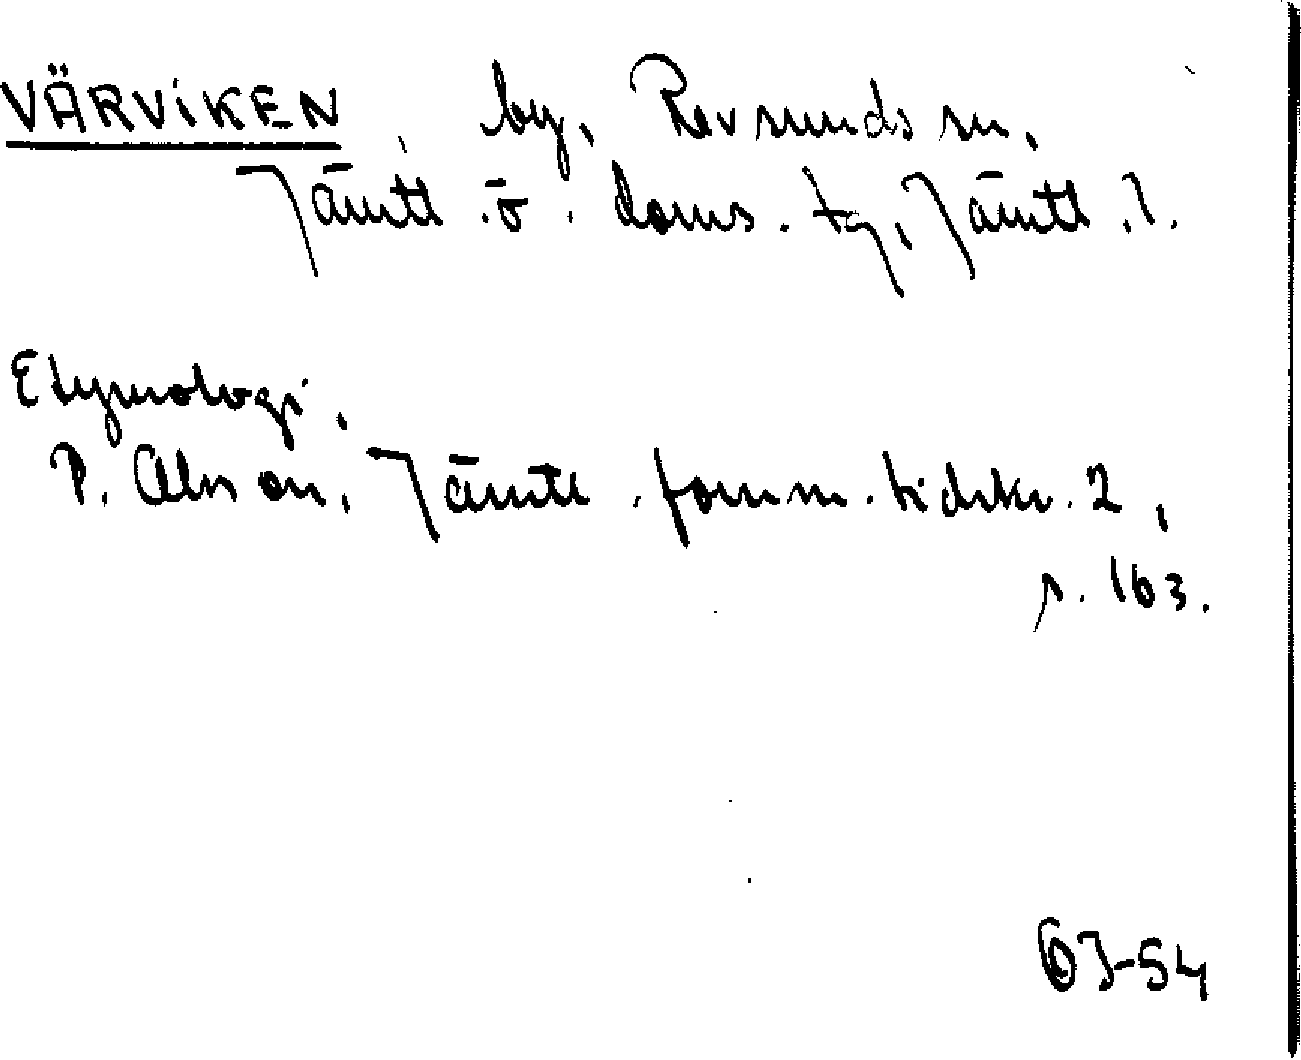 VÄRVIKEN, by, Revsunds sn,
Jämtl. ö. doms. tg, Jämtl. l.
Etymologi.
P. Olsson, Jämtl. fornm. tidskr. 2,
s. 163.
ÖJ-54